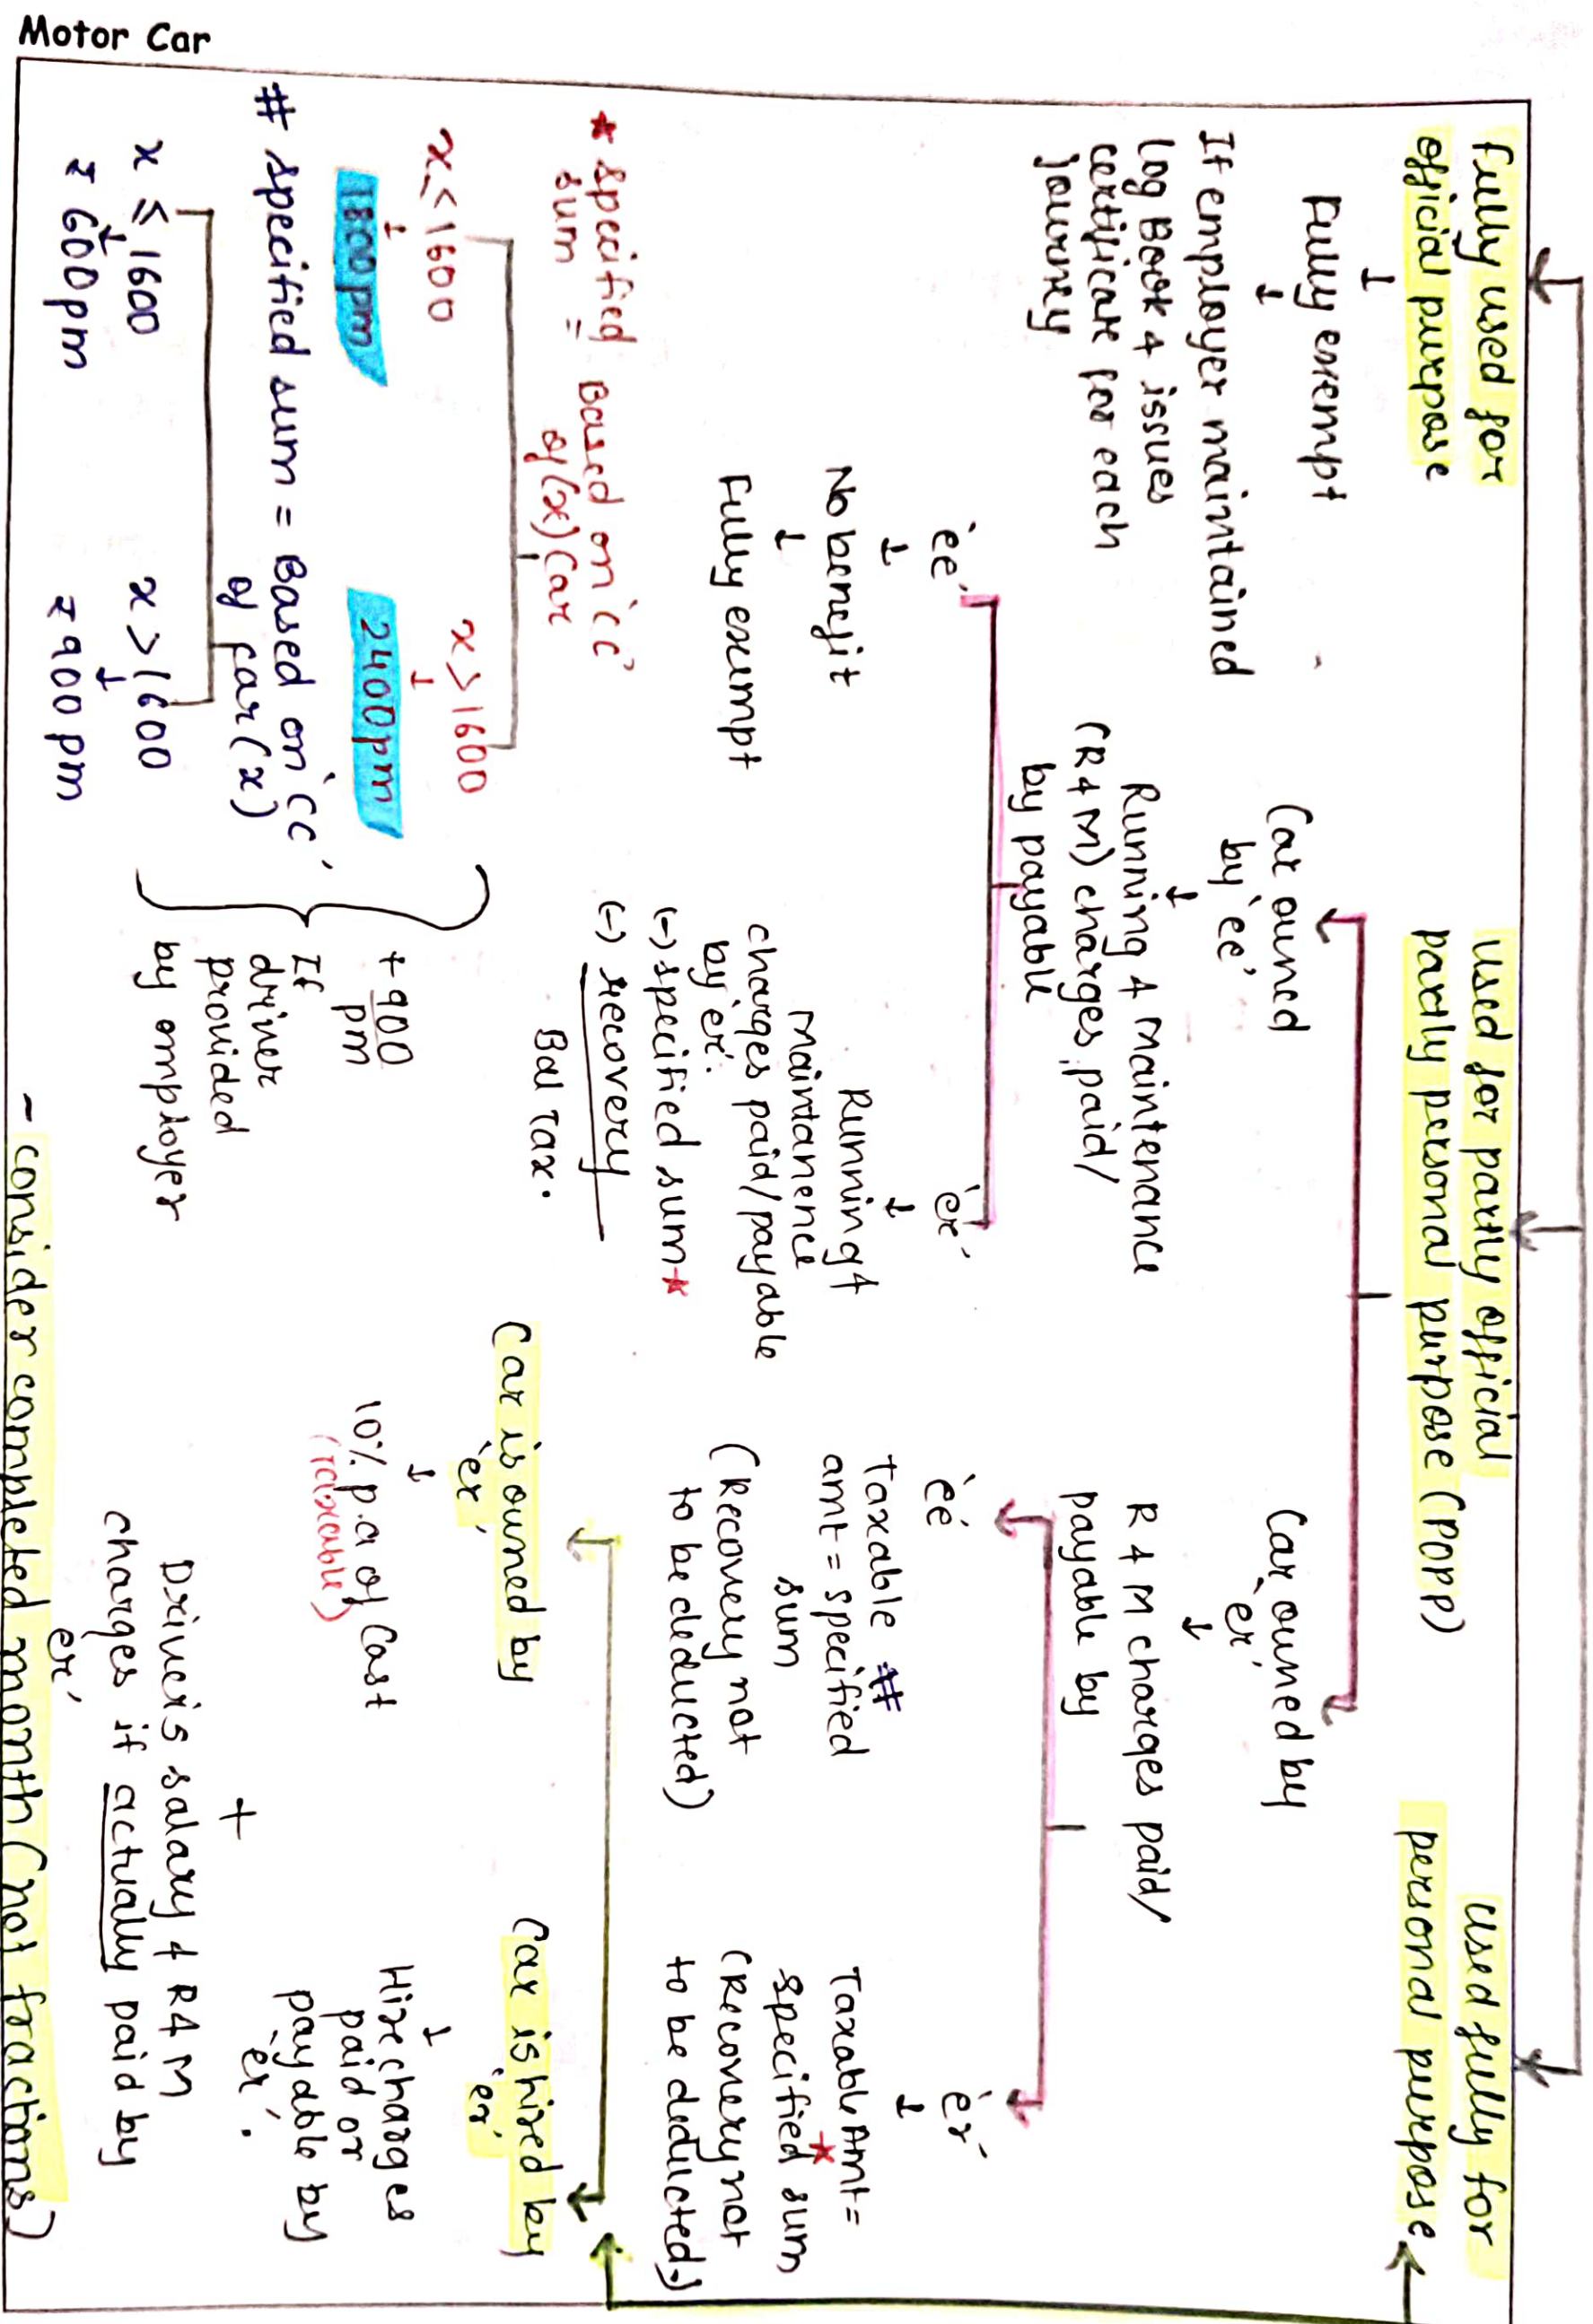 Motor Car
Fully used for
official purpose
Fully exempt
If employer maintained
log Book & issues
certificate for each
journey
used for partly official
partly personal purpose (POPP)
Car owned
by 'ee'
Running & Maintenance
(R & M) charges paid/
by payable
'ee'
No benefit
Fully exempt
'er'
Running &
Maintanence
charges paid/payable
by er'.
(-) specified sum*
(-) recovery
Bal Tax.
Car owned by
'er'
R & M charges paid/
payable by
'ee'
Taxable #
amt = specified
sum
(Recovery not
to be deducted)
'er'
Taxable Amt =
specified sum *
(Recovery not
to be deducted)
used fully for
personal purpose
Car is owned by
'er'
10% p.a of Cost
(Taxable)
Car is hired by
'er'
Hire charges
paid or
payable by
'er'.
+
Driver's salary & R & M
charges if actually paid by
er'
* specified = Based on 'cc'
sum of (x) Car
x ≤ 1600
1800pm
x > 1600
2400pm
# specified sum = Based on 'cc'
of car (x)
x ≤ 1600
₹ 600 pm
x > 1600
₹ 900 pm
+ 900
pm
If
driver
provided
by employer
~ consider completed month (not fractions)